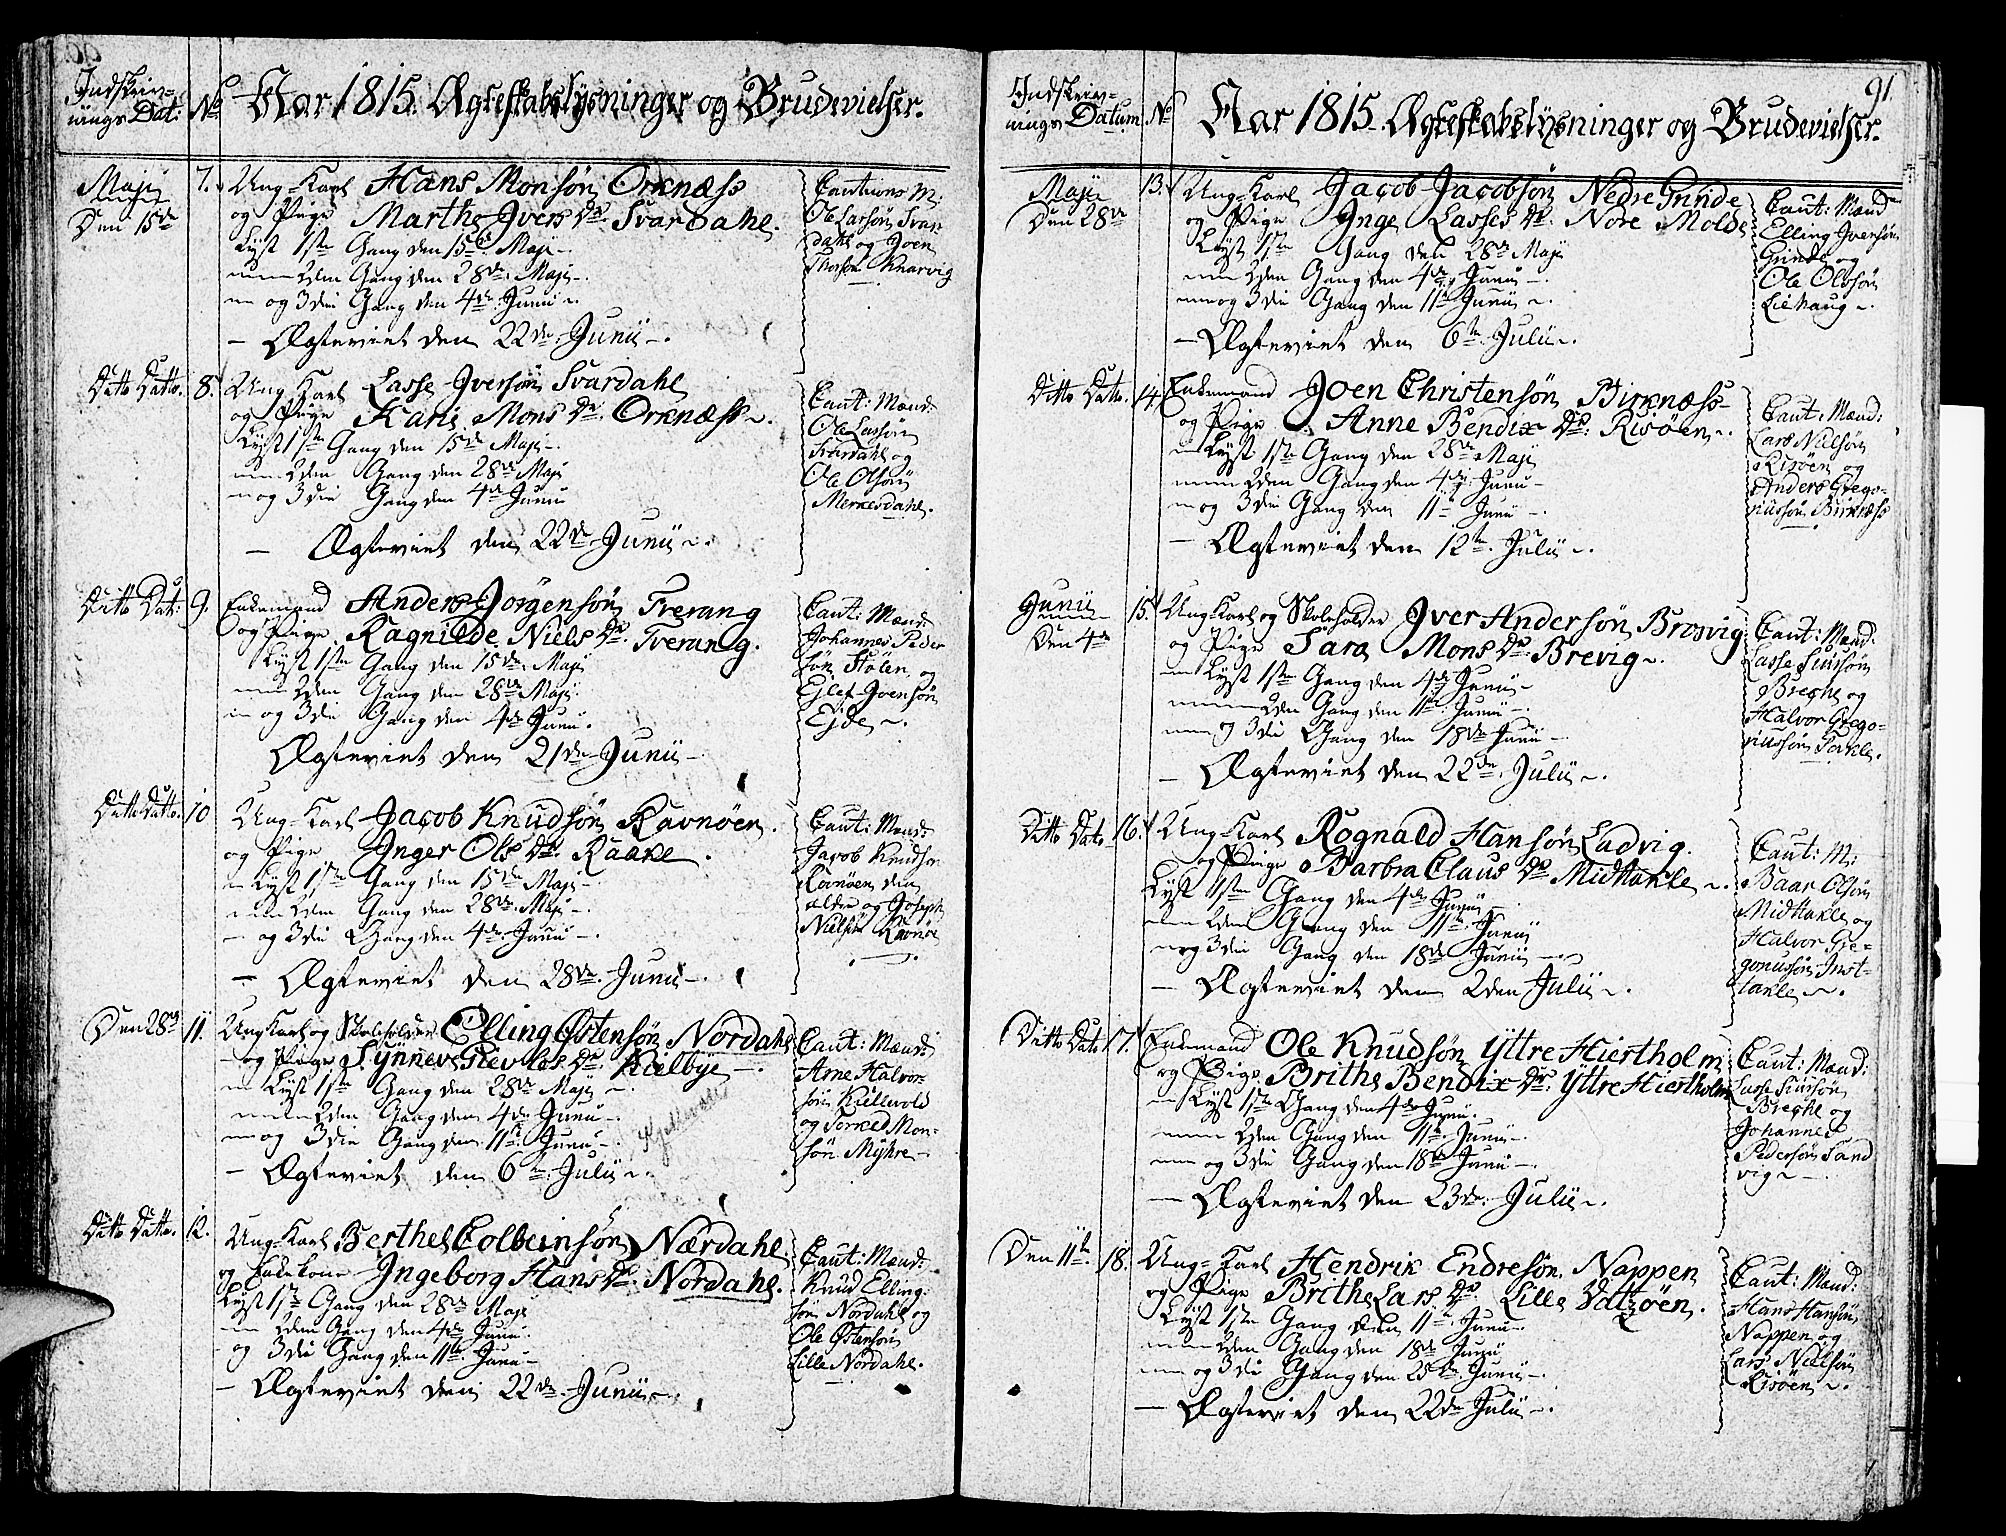 Indskriv-
nings Dat: No Aar 1815. Ægteskabslysninger og Brudevielser.
Maji 7. Ung-Karl Hans Monsøn Orknæss
Den 15de og Pige Marthe Ivers Dr. Svardahl.
Lyst 1ste Gang den 15de Maji
2den Gang den 28de Maji
og 3die Gang den 4de Junii
Ægteviet den 22de Junii
Cautions M:
Ole Larsøn Svar
dahl og Joen
Knarvig
Ditto Datto. 8. Ung Karl Lasse Iversøn Svardahl
og Pige Kari Mons Dr. Orknæss
Lyst 1ste Gang den 15de Maji
2den Gang den 28de Maji
og 3die Gang den 4de Junii
Ægteviet den 22de Junii
Caut: Mænd:
Ole Larsøn
Svardahl og
Ole Olsøn
Merkesdahl.
Ditto Dat: 9. Enkemand Anders Jørgensøn Tverang
og Pige Ragnilde Niels Dr. Tverang.
Lyst 1ste Gang den 15de Maji
2den Gang den 28de Maji
og 3die Gang den 4de Junii.
Ægteviet den 21de Junii
Caut: Mænd:
Johannes Peder
søn Stølen og
Ejlef Joensøn
Ejde
Ditto Datto. 10 Ung-Karl Jacob Knudsøn Ravnøen.
og Pige Inger Ols Dr. Raake.
Lyst 1ste Gang den 15de Maji
2den Gang den 28de Maji
og 3die Gang den 4de Junii
Ægteviet den 28de Junii
Caut: Mænd:
Jacob Knudsøn
Ravnøen den
ældre og Joseph
Nielsøn Ravnøe
Den 28de 11. Ung Karl og Skoleholder Elling Østensøn Nordahl
og Pige Synneve Dr. Kielbye
Lyst 1ste Gang den 28de Maji
2den Gang den 4de Junii
og 3die Gang den 11te Junii
Ægteviet den 6te Julii
Caut: Mænd:
Arne Halvor-
søn Killevold
og Torkel Mon-
søn Myhre
Ditto Datto. 12. Ung-Karl Berthel Colbeinsøn Nærdahl
og Enkekone Ingeborg Hans Dr. Nordahl.
Lyst 1ste Gang den 28de Maji
2den Gang den 4de Junii
og 3die Gang den 11te Junii
Ægteviet den 22de Junii
Caut: Mænd:
Knud Elling-
søn Nordahl og
Ole Østensøn
Lille Nordahl.
91.
Indskriv-
nings Datum No Aar 1815. Ægteskabslysninger og Brudevielser.
Maji 13. Ung-Karl Jacob Jacobsøn Nedre Grinde
Den 28de og Pige Inge Lasses Dr. Nore Molde
Lyst 1ste Gang den 28de Maji
2den Gang den 4de Junii
og 3die Gang den 11te Junii
Ægteviet den 6te Julii
Caut: Mænd
Elling Iversøn
Grinde og
Ole Olsøn
Liehaug
Ditto Datto. 14. Enkemand Joen Christensøn Birknæss
og Pige Anne Bendix Dr. Risøen
Lyst 1ste Gang den 28de Maji
2den Gang den 4de Junii
og 3die Gang den 11te Junii
Ægteviet den 12te Julii
Caut: Mænd:
Lars Nielsøn
Risøen og
Anders Grego-
riussøn Birknæss
Junii 15. Ung-Karl og Skoleholder Iver Andersøn Brosvig
Den 4de og Pige Sara Mons Dr. Brevig
Lyst 1ste Gang den 4de Junii
2den Gang den 11te Junii
og 3die Gang den 18de Junii
Ægteviet den 22de Julii
Caut: Mænd:
Lasse
Breche og
Halvor Grego-
riussøn Takle.
Ditto Dato 16. Ung Karl Rognald Hansøn Ladvig.
og Pige Barbra Claus Dr. Midttakle
Lyst 1ste Gang den 4de Junii
2den Gang den 11te Junii
og 3die Gang den 18de Junii
Ægteviet den 2den Julii
Caut: M:
Baar Olsøn
Midttakle og
Halvor Gre-
goriussøn Inst-
takle
Ditto Dato 17. Enkemand Ole Knudsøn Yttre Hiertholm
og Pige Brithe Bendix Dr. Yttre Hiertholm
Lyst 1ste Gang den 4de Junii.
2den Gang den 11te Junii
og 3die Gang den 18de Junii
Ægteviet den 23de Julii
Caut: Mænd:
Lasse
Breche og
Johannes
Pedersøn Sand
vig
Den 11te 18. Ung-Karl Hendrik Endresøn Nappen
og Pige Brithe Lars Dr. Lille Vatzøen.
Lyst 1ste Gang den 11te Junii
2den Gang den 18de Junii
og 3die Gang den 25de Junii
Ægteviet den 22de Julii
Caut: Mænd:
Hans Hansøn
Nappen og
Lars Nielsøn
Risøen